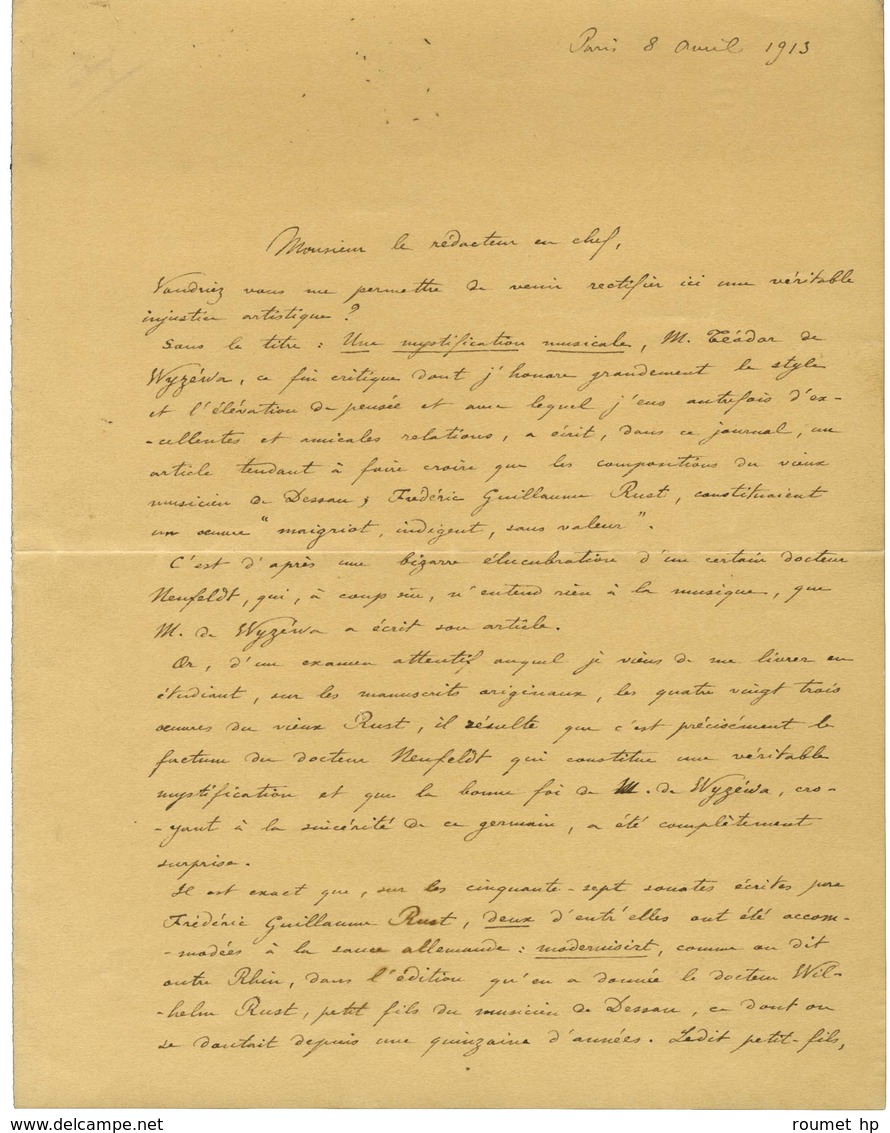 Paris 8 Avril 1913
Monsieur le rédacteur en chef,
Voudriez vous me permettre de venir rectifier ici une véritable
injustice artistique ?
Sous le titre : Une mystification musicale, M. Téodor de
Wyzéwa, ce fin critique dont j'honore grandement le style
et l'élévation de pensée et avec lequel j'eus autrefois d'ex-
-cellentes et amicales relations, a écrit, dans ce journal, un
article tendant à faire croire que les compositions du vieux
musicien de Dessau, Frédéric Guillaume Rust, constituaient
un œuvre "maigriot, indigent, sans valeur".
C'est d'après une bizarre élucubration d'un certain docteur
Neufeldt, qui, à coup sûr, n'entend rien à la musique, que
M. de Wyzéwa a écrit son article.
Or, d'un examen attentif auquel je viens de me livrer en
étudiant, sur les manuscrits originaux, les quatre vingt trois
œuvres du vieux Rust, il résulte que c'est précisément le
factum du docteur Neufeldt qui constitue une véritable
mystification et que la bonne foi de M. de Wyzéwa, cro-
-yant à la sincérité de ce germain, a été complètement
surprise.
Il est exact que, sur les cinquante-sept sonates écrites par
Frédéric Guillaume Rust, deux d'entr'elles ont été accom-
-modées à la sauce allemande : modernisirt, comme on dit
outre Rhin, dans l'édition qu'en a donnée le docteur Wil-
-helm Rust, petit fils du musicien de Dessau, ce dont on
se doutait depuis une quinzaine d'années. Ledit petit-fils,
delcampe.net
roumet hp